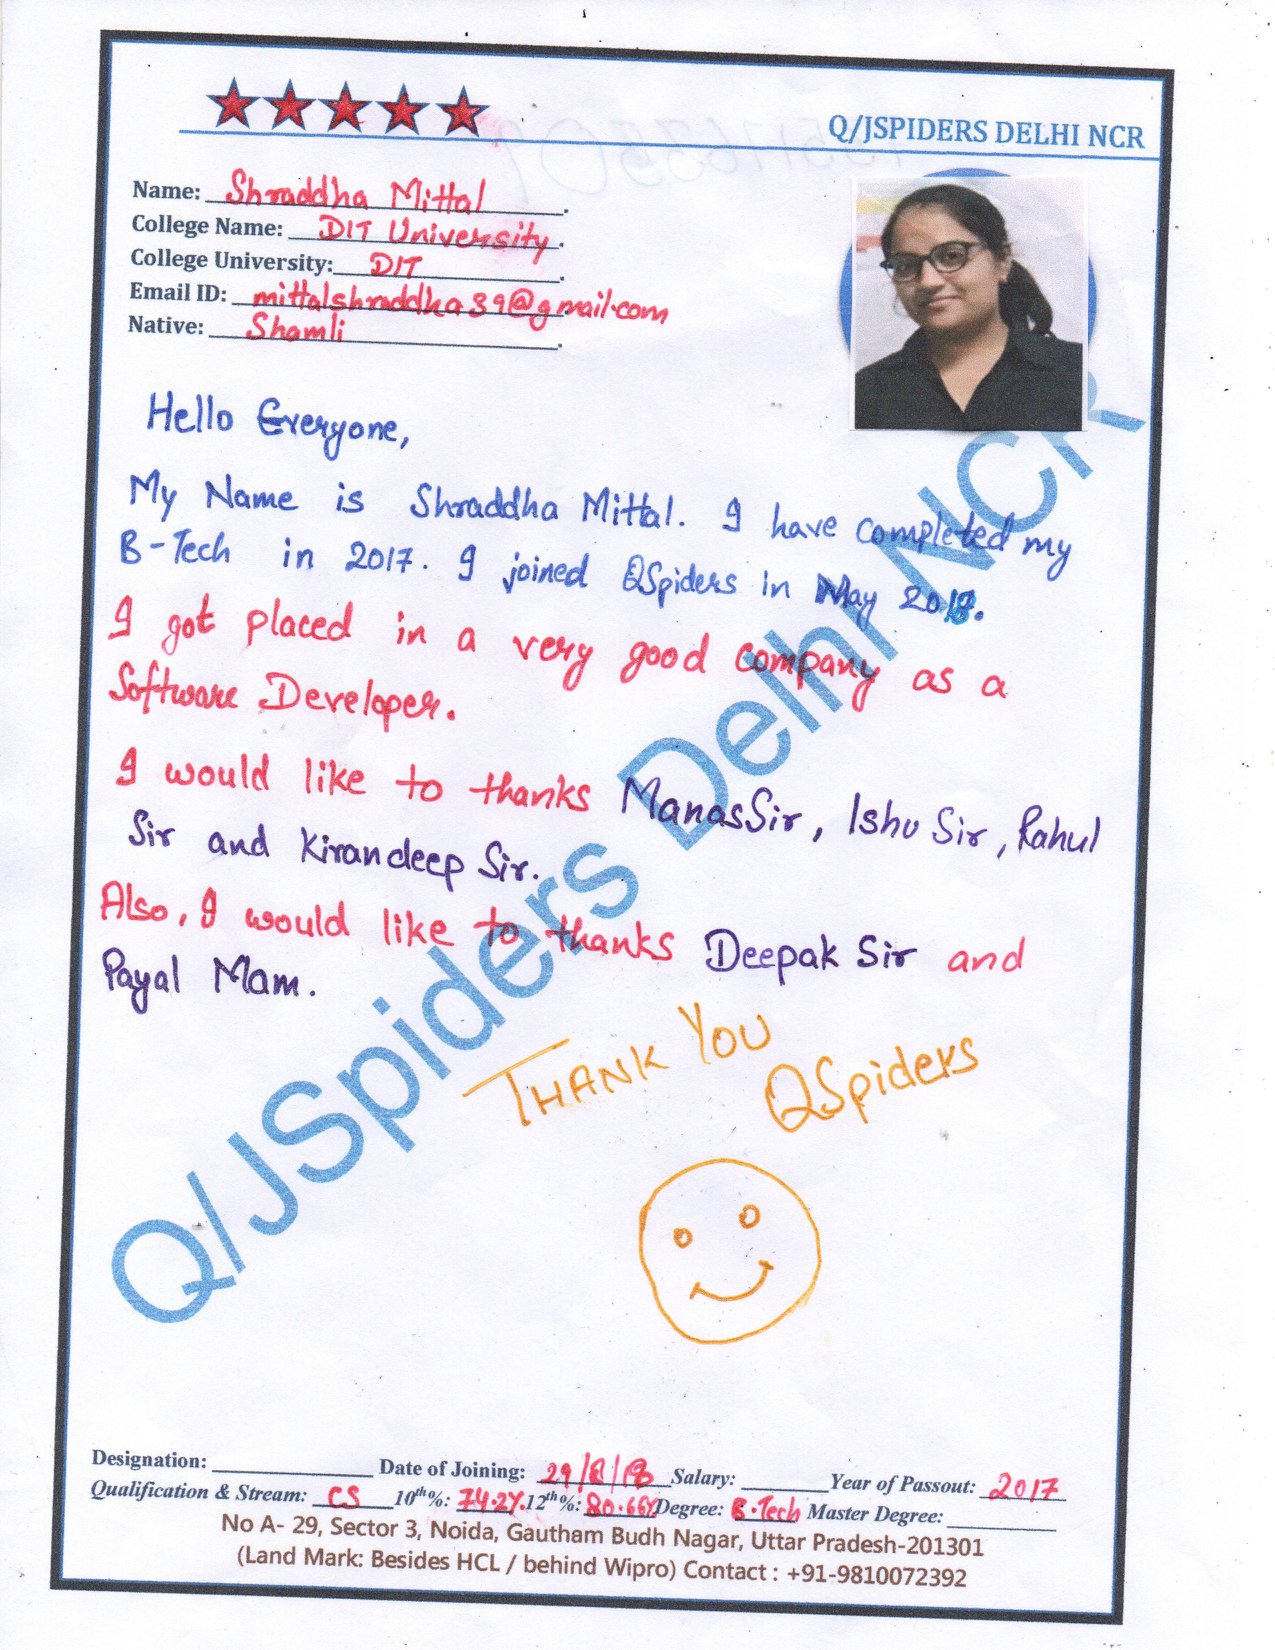 Q/JSPIDERS DELHI NCR
Name: Shraddha Mittal.
College Name: DIT University.
College University: DIT.
Email ID: mittalshraddha39@gmail.com
Native: Shamli.
Hello Everyone,
My Name is Shraddha Mittal. I have completed my
B-Tech in 2017. I joined QSpiders in May 2018.
I got placed in a very good company as a
Software Developer.
I would like to thanks Manas Sir, Ishu Sir, Rahul
Sir and Kirandeep Sir.
Also, I would like to thanks Deepak Sir and
Payal Mam.
THANK YOU
QSpiders
Q/JSpiders Delhi NCR
Designation: Date of Joining: 29/8/18 Salary: Year of Passout: 2017
Qualification & Stream: CS 10th%: 74.2%. 12th%: 80.66% Degree: B.Tech Master Degree:
No A- 29, Sector 3, Noida, Gautham Budh Nagar, Uttar Pradesh-201301
(Land Mark: Besides HCL / behind Wipro) Contact : +91-9810072392